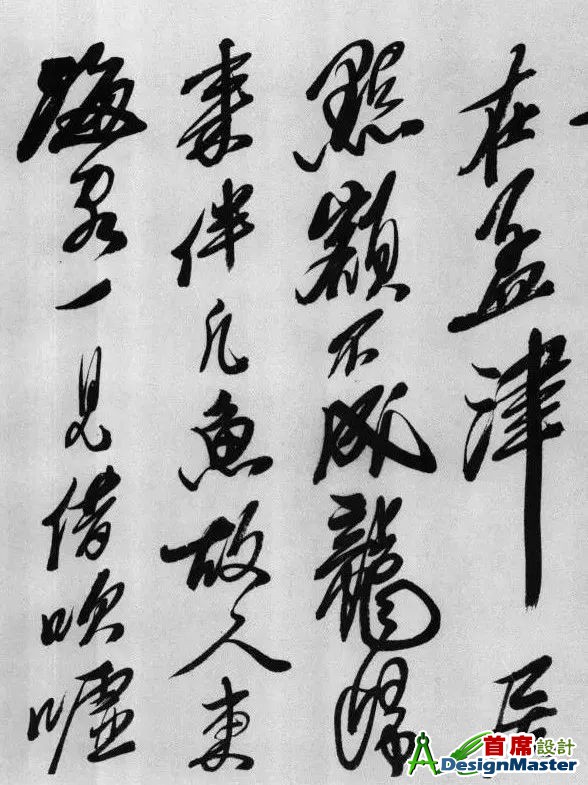 在孟津居
點額不成龍歸
來伴凡魚故人東
海客一見借吹噓
首席設計
DesignMaster